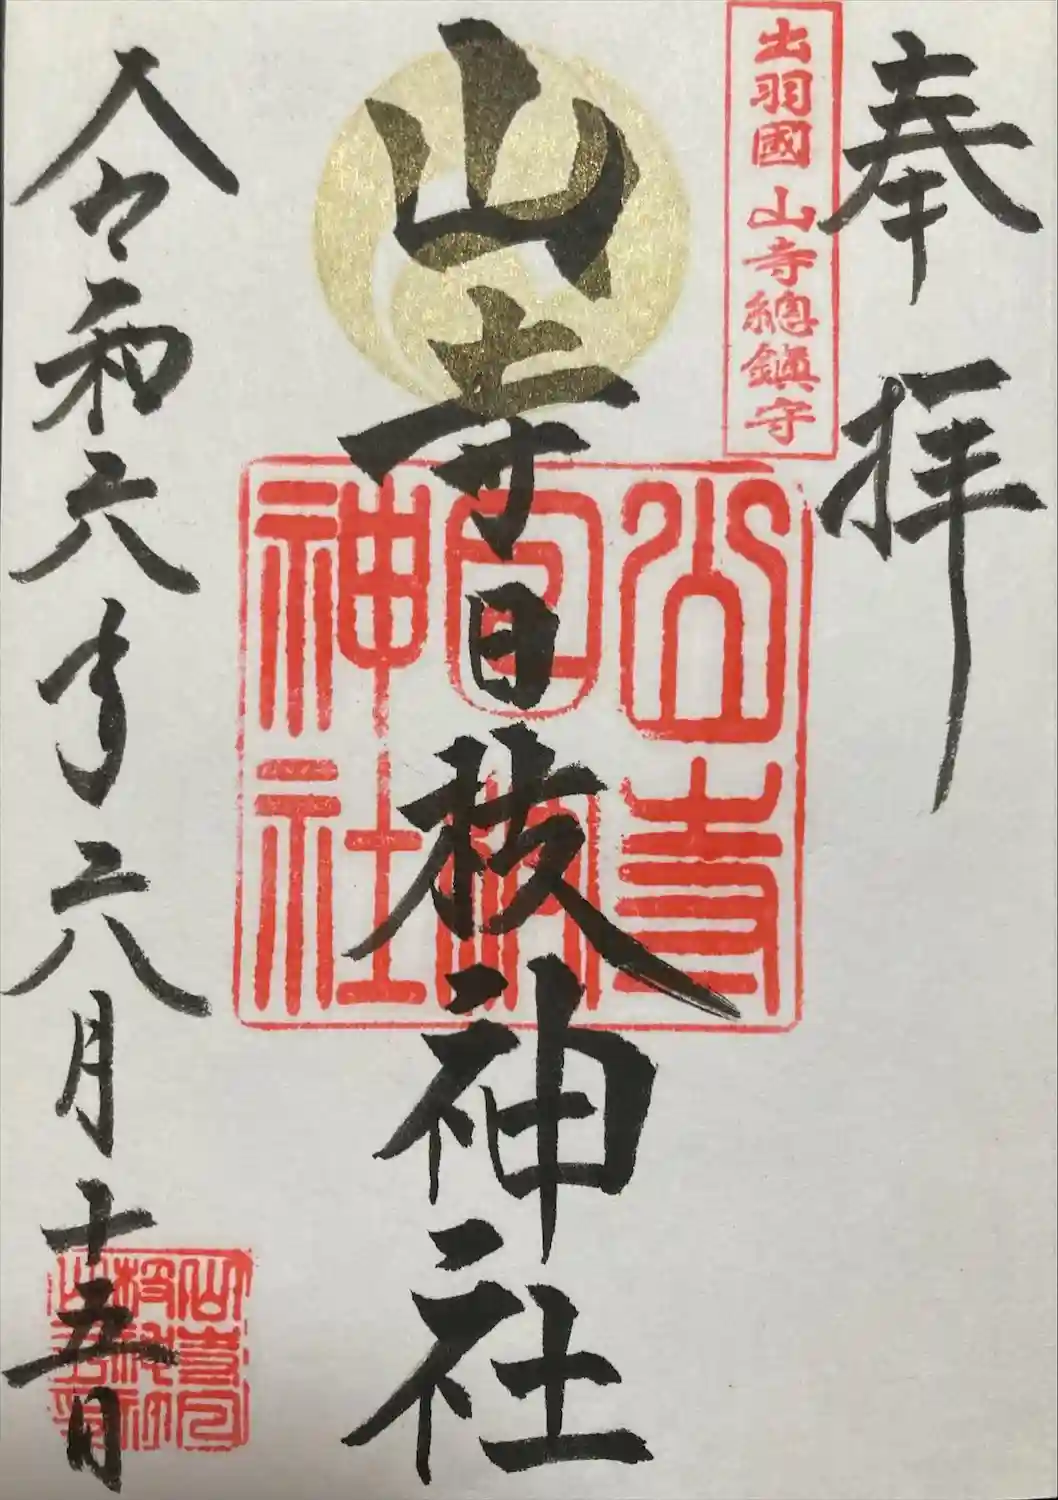 奉拝
出羽國 山寺總鎭守
山寺日枝神社
山寺
日枝
神社
令和六年六月十五日